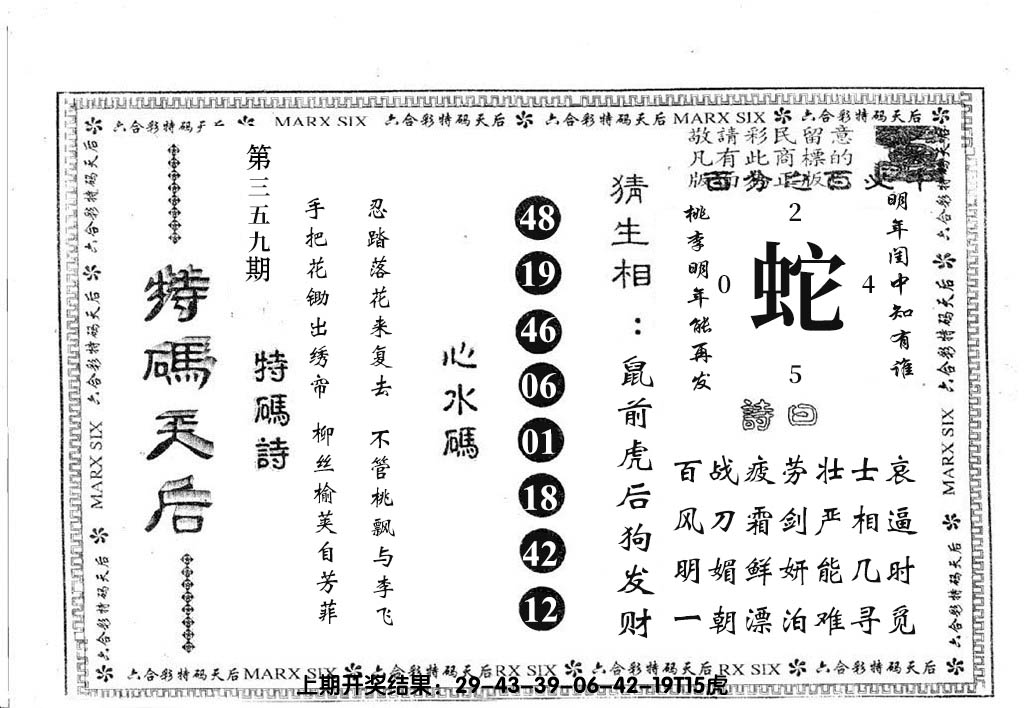 六合彩特码天后 MARX SIX 六合彩特码天后 六合彩特码天后 MARX SIX 六合彩特码天后
敬請彩民留意
凡有此商標的
版面为正版
明年闰中知有谁
桃李明年能再发
2
0 蛇 4
5
詩曰
百战疲劳壮士哀
风刀霜剑严相逼
明媚鲜妍能几时
一朝漂泊难寻觅
猜生相：鼠前虎后狗发财
48
19
46
06
01
18
42
12
心水碼
忍踏落花来复去 不管桃飘与李飞
手把花锄出绣帘 柳丝榆荚自芳菲
第三五九期
特碼詩
特碼天后
六合彩特码天后 六合彩特码天后 MARX SIX 六合彩特码天后
六合彩特码天后 六合彩特码天后 MARX SIX 六合彩特码天后
六合彩特码天后 MARX SIX 六合彩特码天后 RX SIX 六合彩特码天后 RX SIX 六合彩特码天后
上期开奖结果：29-43-39-06-42-19T15虎